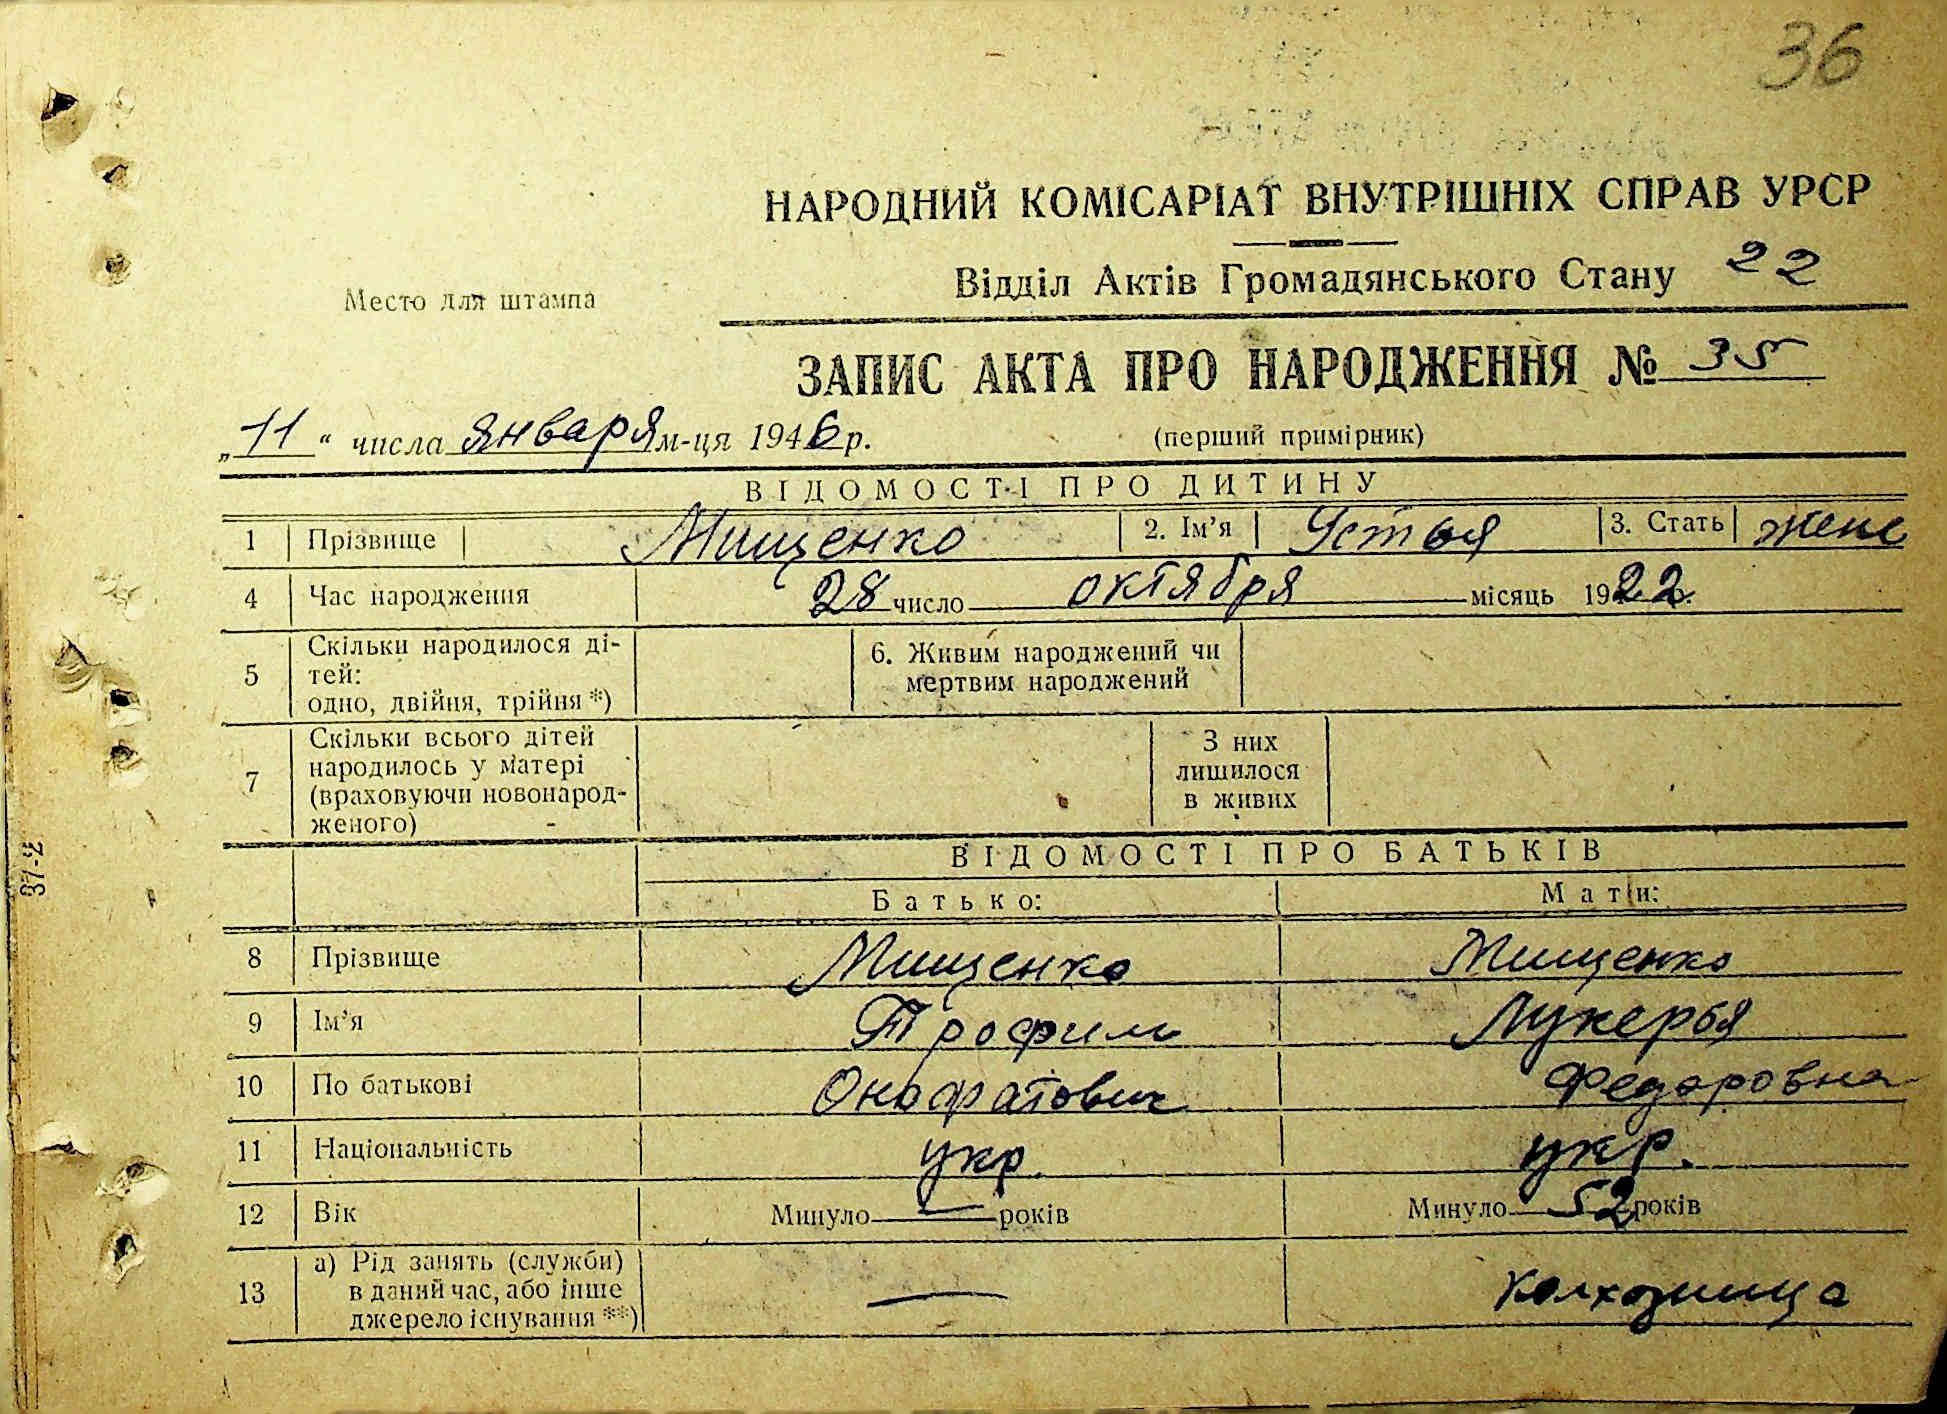 36
НАРОДНИЙ КОМІСАРІАТ ВНУТРІШНІХ СПРАВ УРСР
Відділ Актів Громадянського Стану 22
Место для штампа
ЗАПИС АКТА ПРО НАРОДЖЕННЯ № 35
„11“ числа января м-ця 1946 р. (перший примірник)
ВІДОМОСТІ ПРО ДИТИНУ
1 Прізвище Мищенко 2. Ім'я Устья 3. Стать жене
4 Час народження 28 число октября місяць 1922 р.
5 Скільки народилося ді-
тей:
одно, двійня, трійня *)
6. Живим народжений чи
мертвим народжений
7 Скільки всього дітей
народилось у матері
(враховуючи новонарод-
женого)
З них
лишилося
в живих
ВІДОМОСТІ ПРО БАТЬКІВ
Батько: Мати:
8 Прізвище Мищенко Мищенко
9 Ім'я Трофим Лукерья
10 По батькові Онофратович Федоровна
11 Національність укр. укр.
12 Вік Минуло — років Минуло 52 років
13 а) Рід занять (служби)
в даний час, або інше
джерело існування **)
— колхозница
37-2